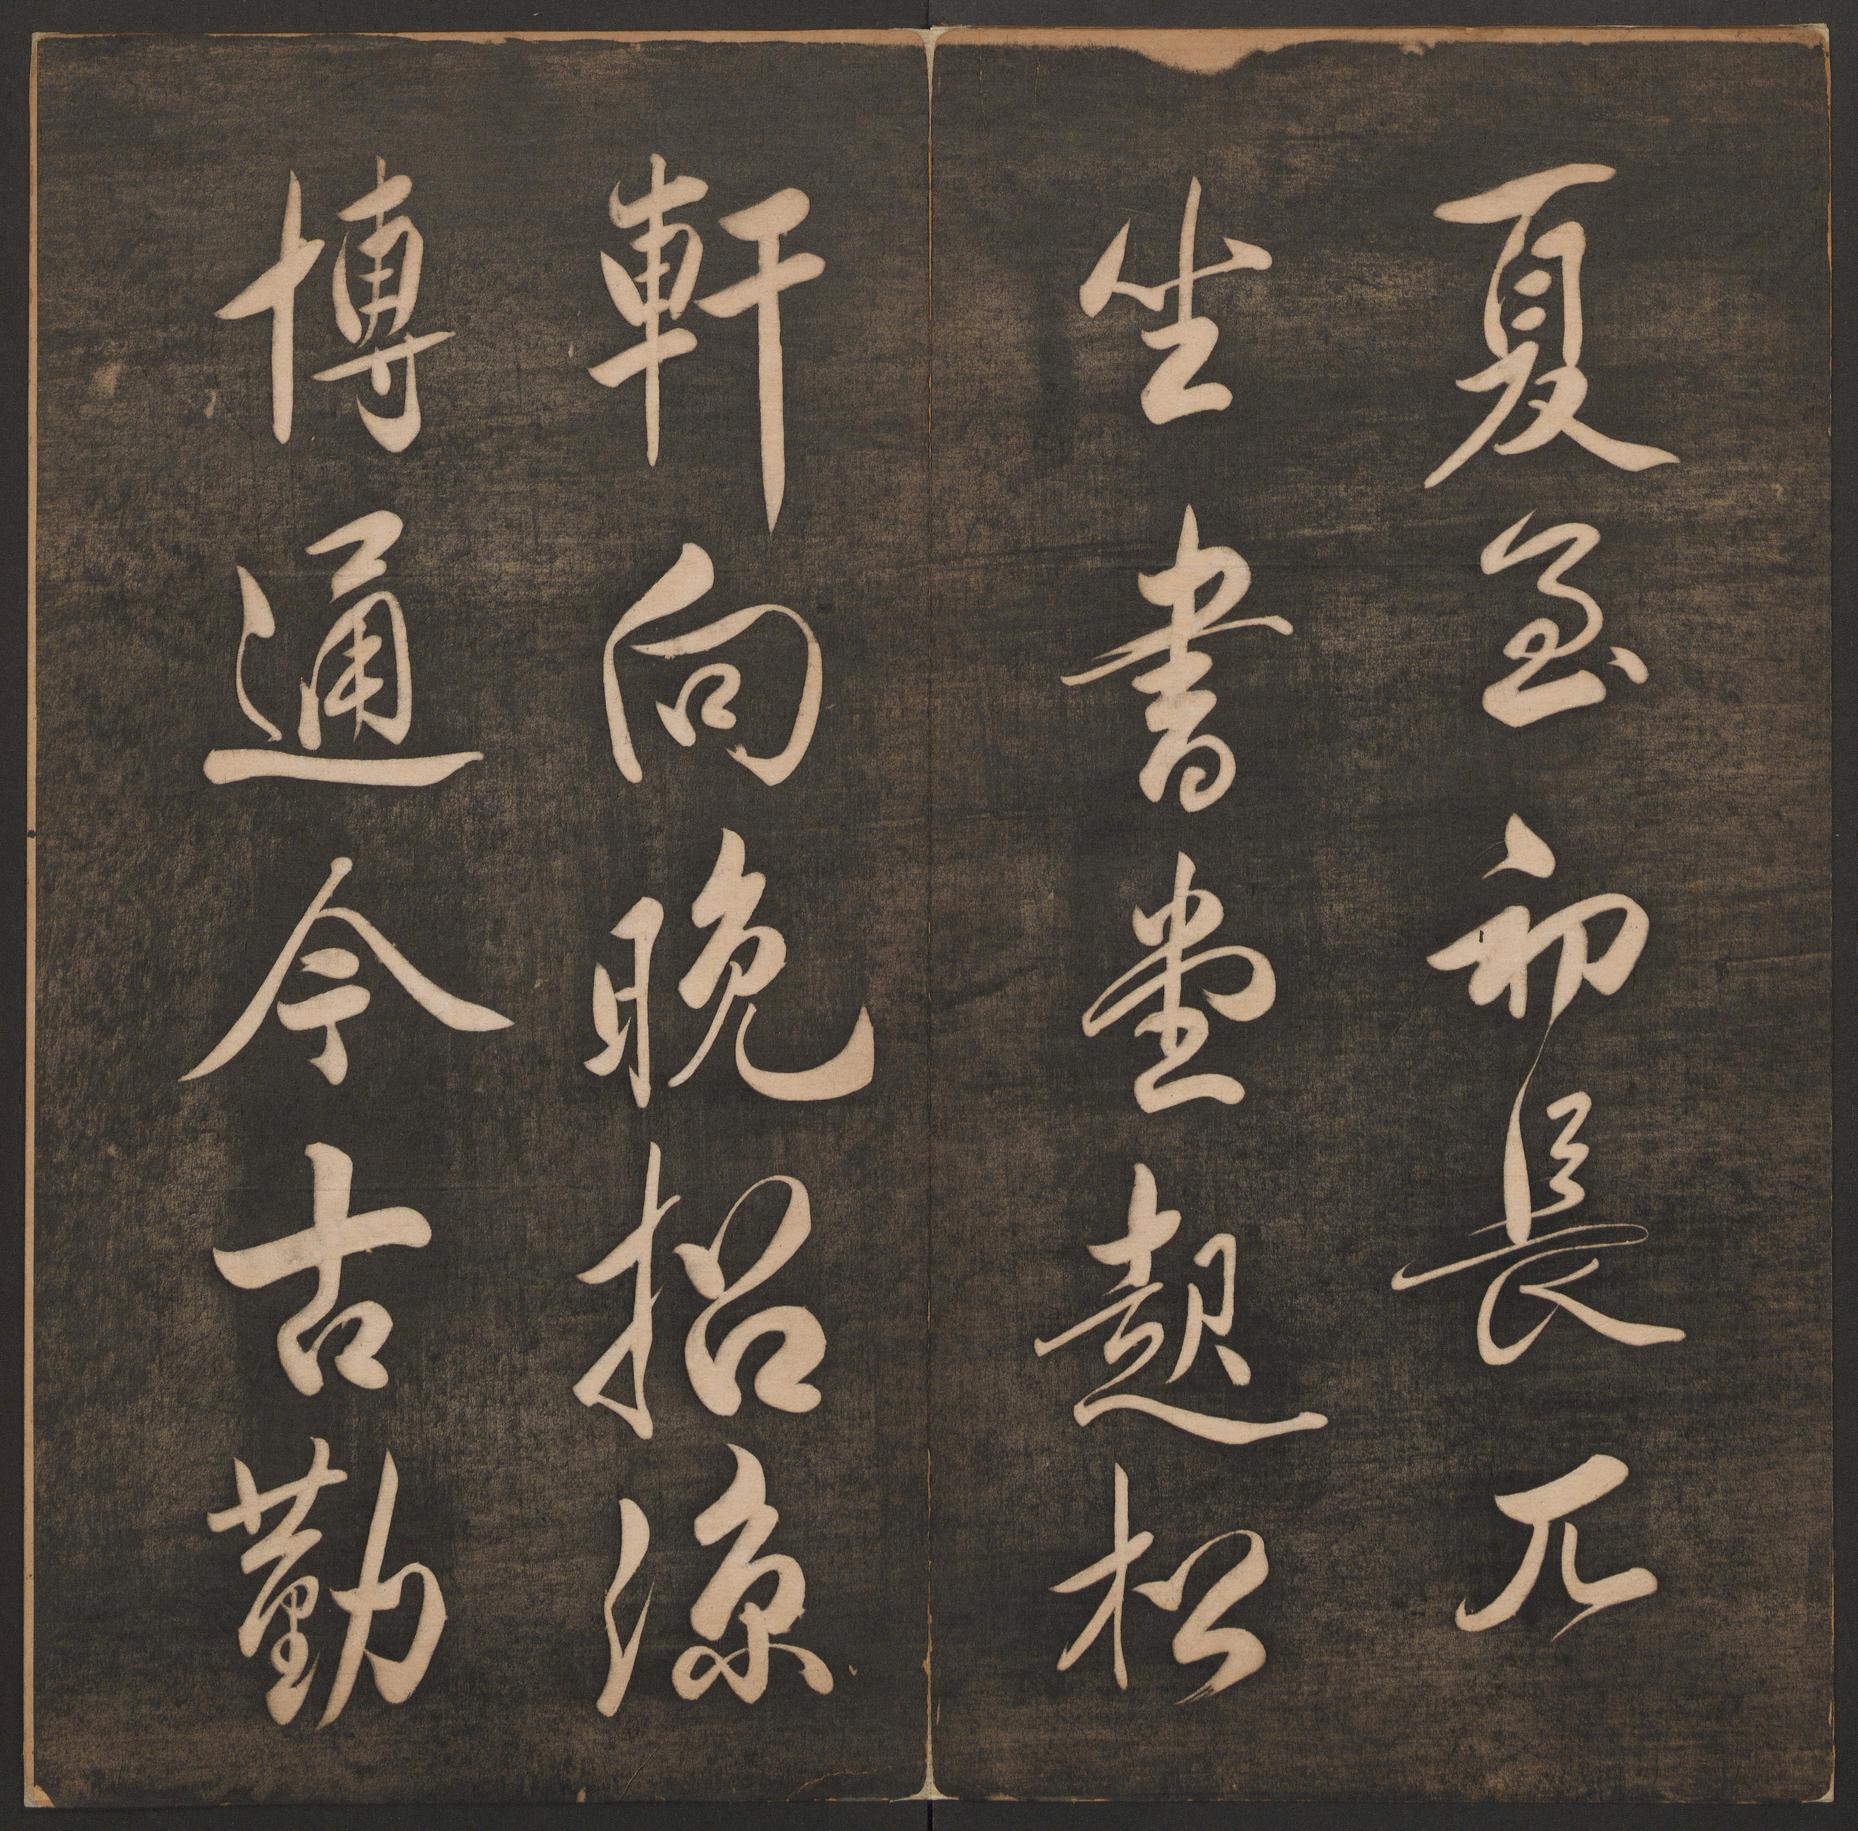 夏至初長兀
坐書堂趣松
軒向晚招涼
博通今古勤